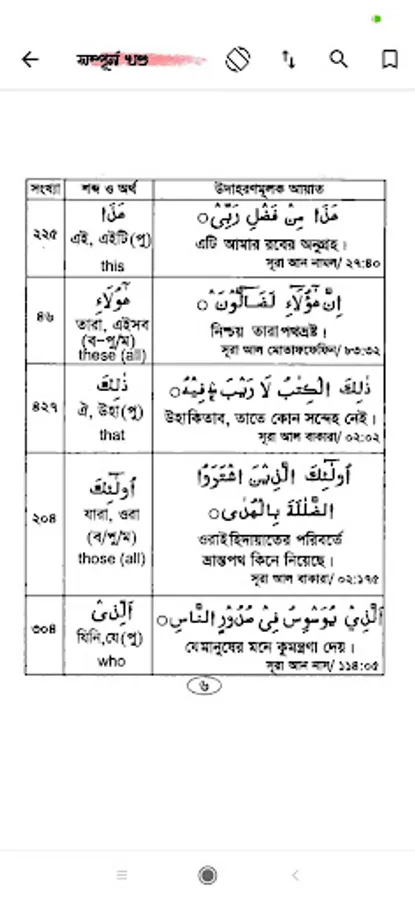 সম্পূর্ন খণ্ড
সংখ্যা শব্দ ও অর্থ উদাহরণমূলক আয়াত
২২৫
هٰذَا
এই, এইটি(পু)
this
هٰذَا مِنْ فَضْلِ رَبِّىْ
এটি আমার রবের অনুগ্রহ।
সূরা আন নামল/ ২৭:৪০
৪৬
هٰٓؤُلَاءِ
তারা, এইসব
(ব-পু/ম)
these (all)
اِنَّ هٰٓؤُلَاءِ لَضَآلُّوْنَ
নিশ্চয় তারা পথভ্রষ্ট।
সূরা আল মোতাফফেফিন/ ৮৩:৩২
৪২৭
ذٰلِكَ
ঐ, উহা(পু)
that
ذٰلِكَ الْكِتٰبُ لَا رَيْبَ ۛ فِيْهِ
উহাকিতাব, তাতে কোন সন্দেহ নেই।
সূরা আল বাকারা/ ০২:০২
২০৪
اُولٰٓئِكَ
যারা, ওরা
(ব/পু/ম)
those (all)
اُولٰٓئِكَ الَّذِيْنَ اشْتَرَوُا
الضَّلٰلَةَ بِالْهُدٰى
ওরাইহিদায়াতের পরিবর্তে
ভ্রান্তপথ কিনে নিয়েছে।
সূরা আল বাকারা/ ০২:১৭৫
৩০৪
اَلَّذِىْ
যিনি,যে(পু)
who
اَلَّذِىْ يُوَسْوِسُ فِىْ صُدُوْرِ النَّاسِ
যেমানুষের মনে কুমন্ত্রণা দেয়।
সূরা আন নাস/ ১১৪:০৫
৬